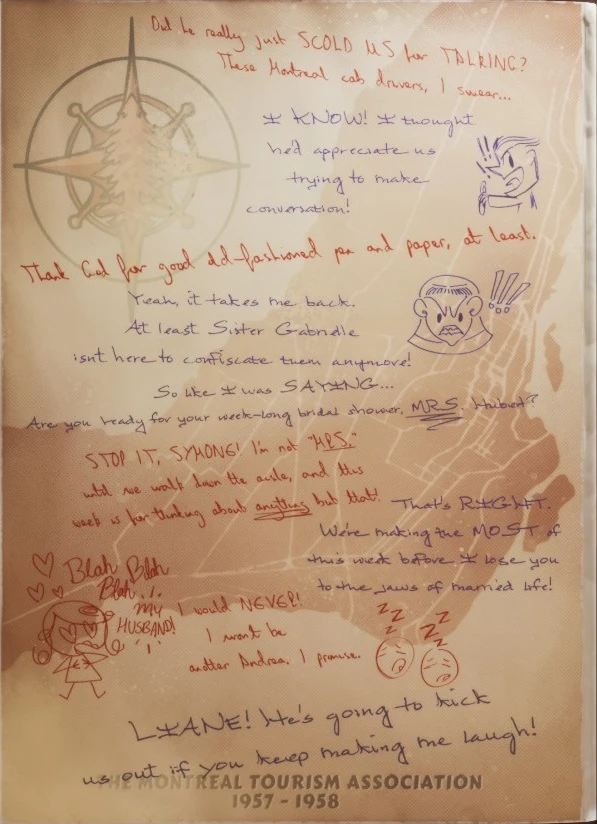 Did he really just SCOLD US for TALKING?
These Montreal cab drivers, I swear...
I KNOW! I thought
he'd appreciate us
trying to make
conversation!
Thank God for good old-fashioned pen and paper, at least.
Yeah, it takes me back.
At least Sister Gabrielle
isn't here to confiscate them anymore!
So like I was SAYING...
Are you ready for your week-long bridal shower, MRS. Hubert?
STOP IT, SYMONE! I'm not "MRS."
until we walk down the aisle, and this
week is for thinking about anything but that!
That's RIGHT.
We're making the MOST of
this week before I lose you
to the jaws of married life!
Blah Blah
Blah!
My
HUSBAND!
I would NEVER!
I won't be
another Andrea. I promise.
z z z
z z z
LIANE! He's going to kick
us out if you keep making me laugh!
THE MONTREAL TOURISM ASSOCIATION
1957 - 1958